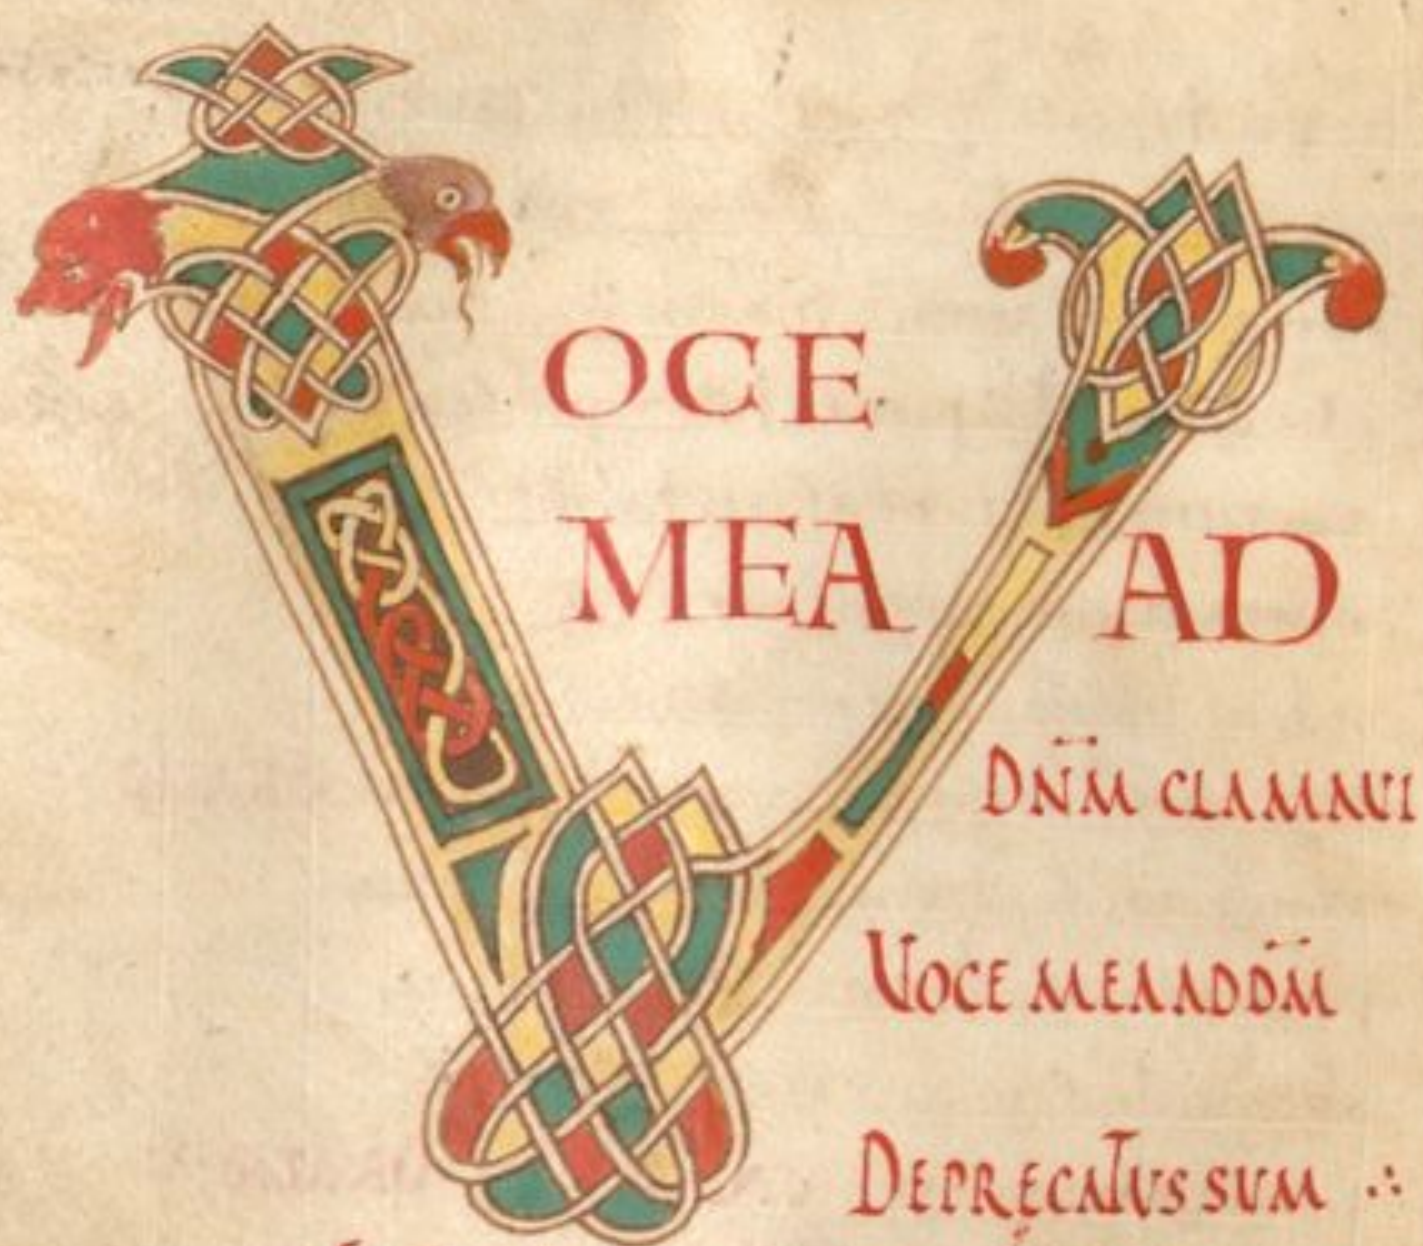 VOCE
MEA AD
DN̄M CLAMAVI
VOCE MEA AD DN̄M
DEPRĘCATUS SUM ∴